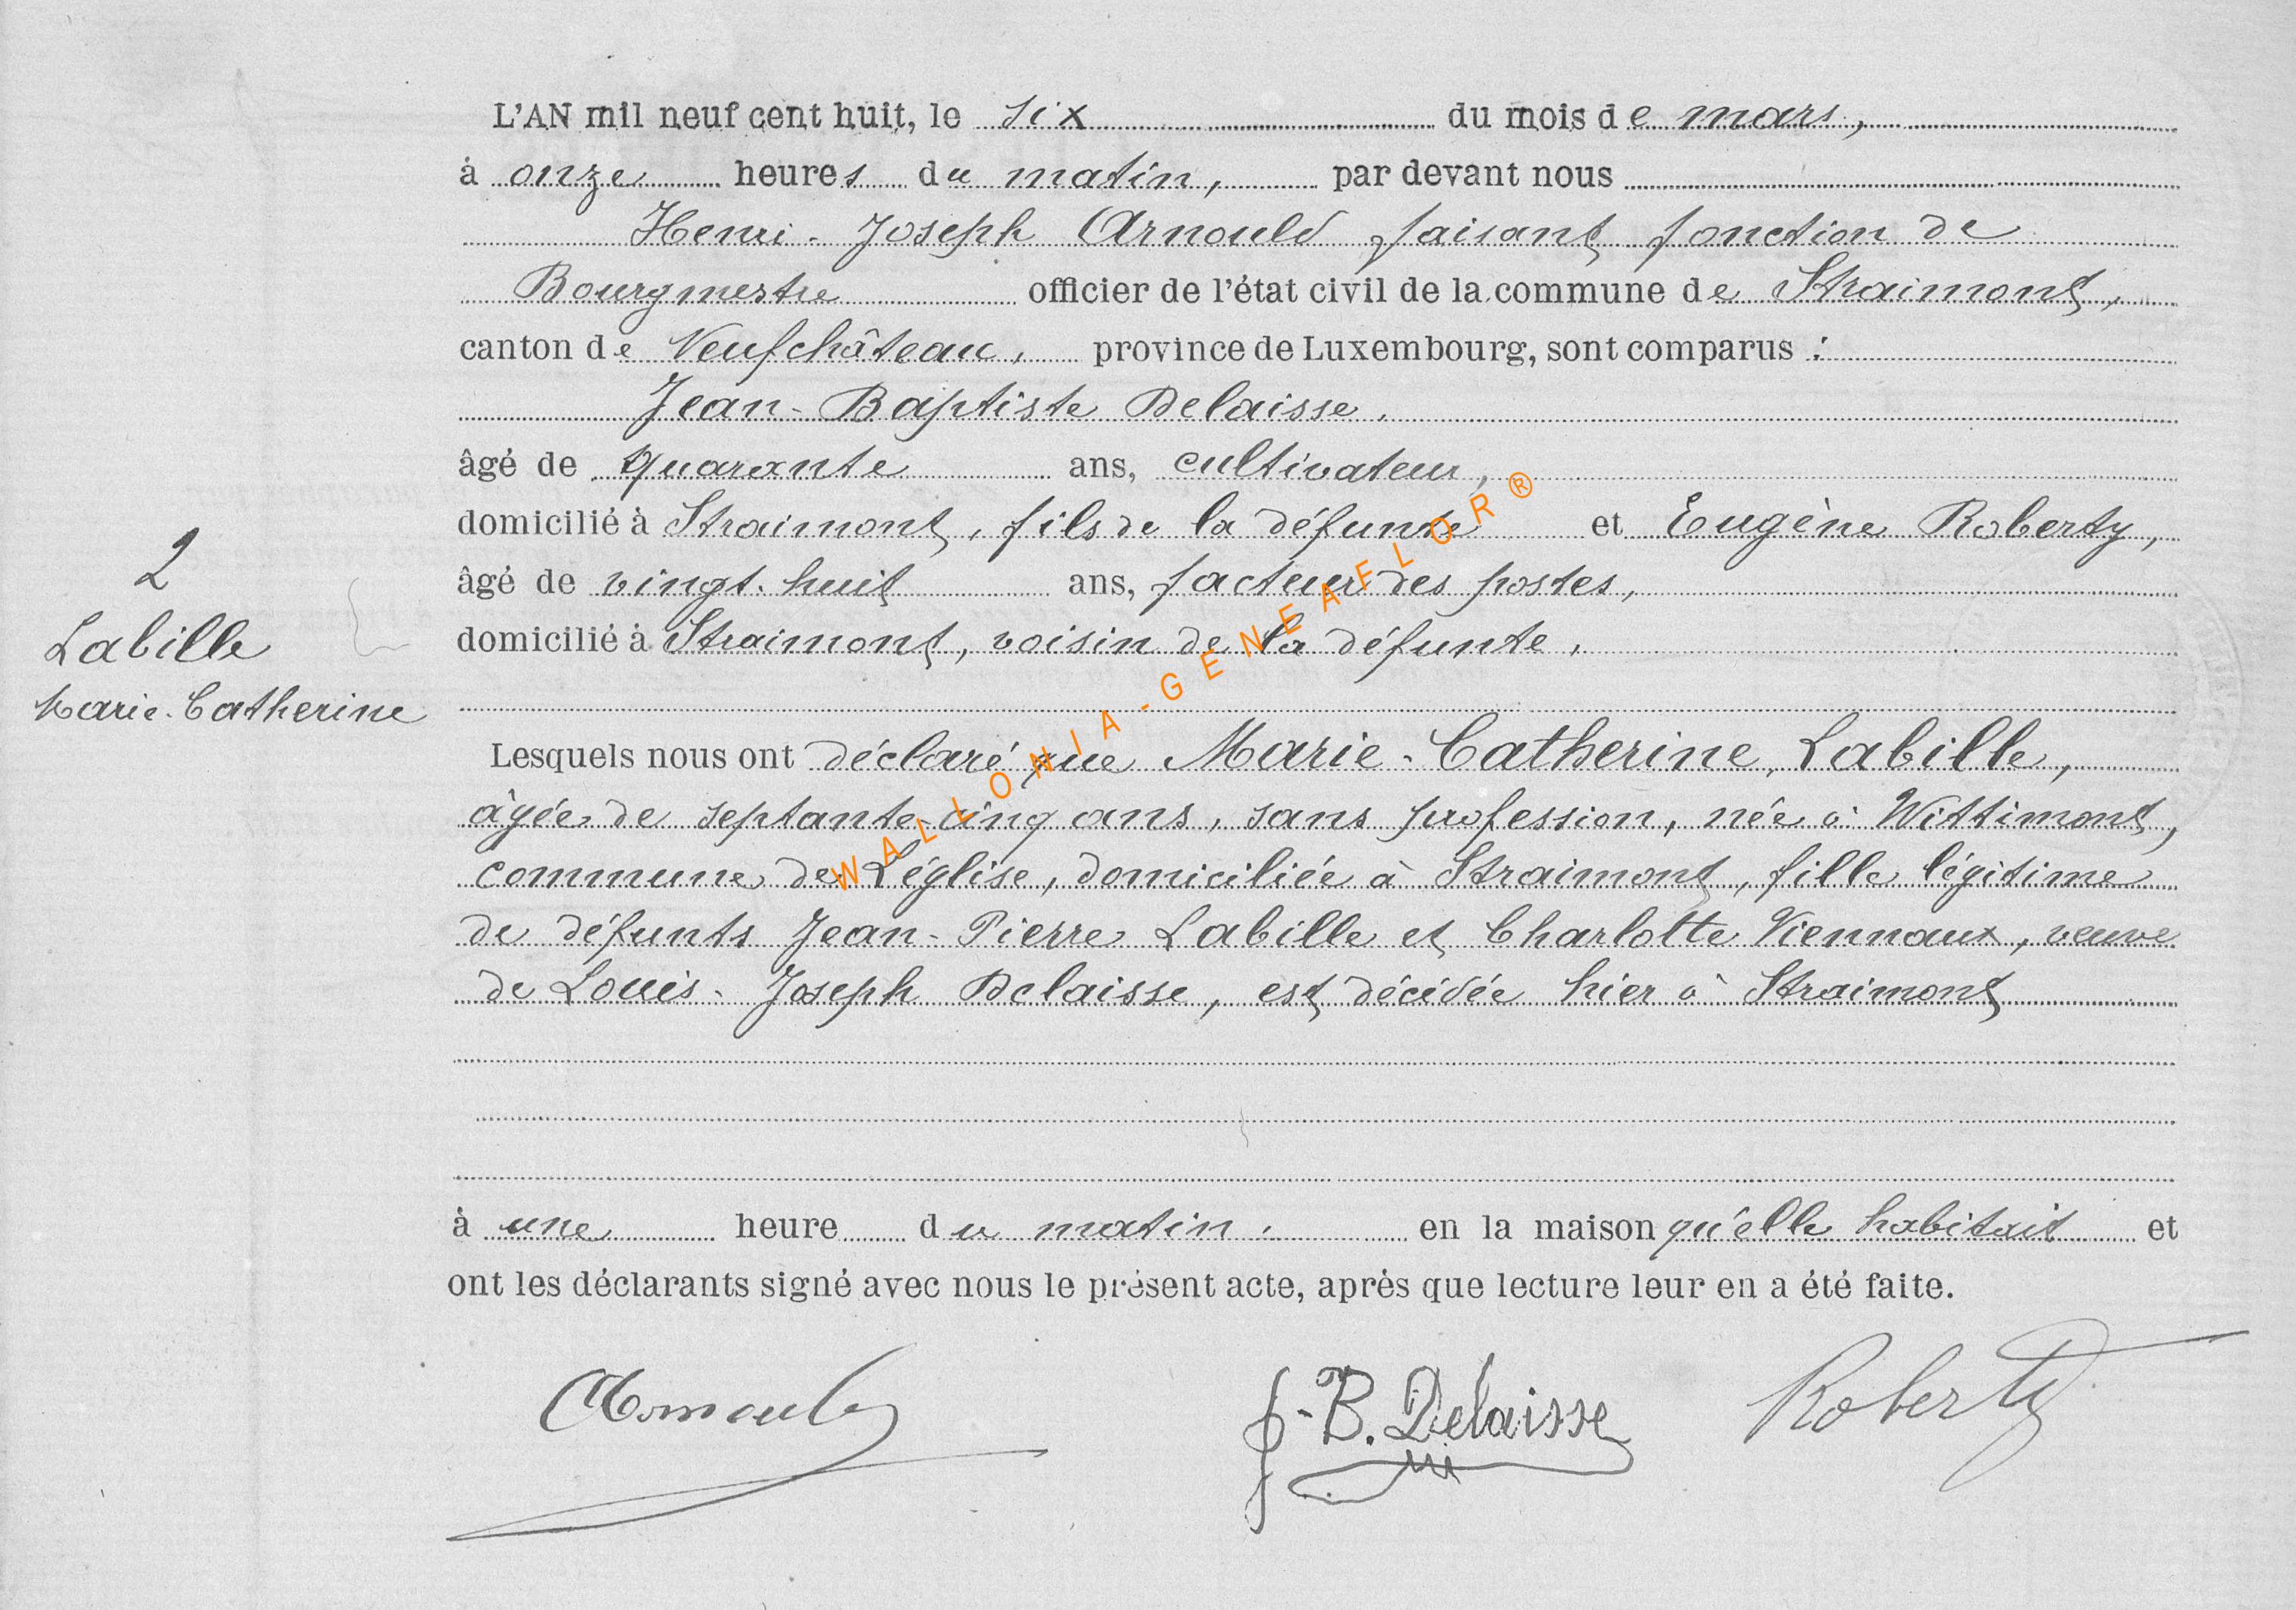 L'AN mil neuf cent huit, le six du mois de mars,
à onze heures du matin, par devant nous
Henri-Joseph Arnould faisant fonction de
Bourgmestre officier de l'état civil de la commune de Straimont,
canton de Neufchâteau, province de Luxembourg, sont comparus :
Jean-Baptiste Delaisse,
âgé de quarante ans, cultivateur,
domicilié à Straimont, fils de la défunte et Eugène Roberty,
2
âgé de vingt-huit ans, facteur des postes,
Labille
domicilié à Straimont, voisin de la défunte,
Marie-Catherine
Lesquels nous ont déclaré que Marie-Catherine Labille,
âgée de septante-cinq ans, sans profession, née à Wittimont,
commune de Léglise, domiciliée à Straimont, fille légitime
de défunts Jean-Pierre Labille et Charlotte Viennaux, veuve
de Louis-Joseph Delaisse, est décédée hier à Straimont
à une heure du matin, en la maison qu'elle habitait et
ont les déclarants signé avec nous le présent acte, après que lecture leur en a été faite.
Arnould J-B. Delaisse Roberty
WALLONIA-GENEAFLOR®